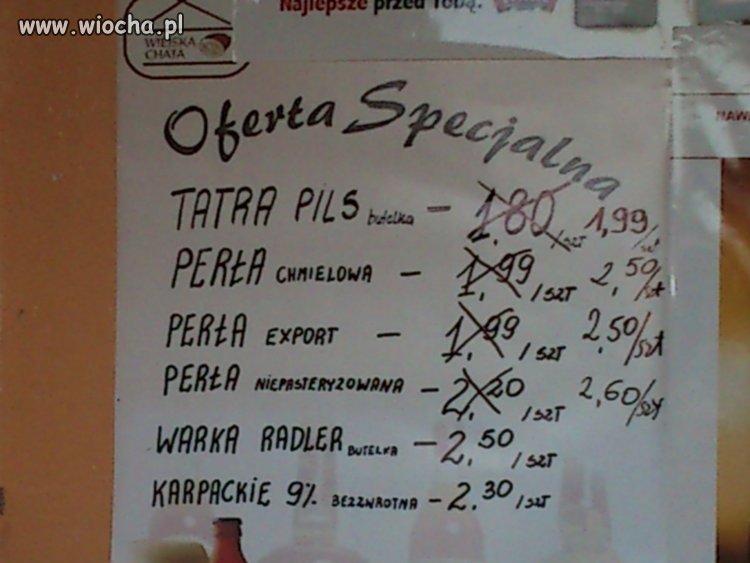 www.wiocha.pl
Najlepsze przed Tobą.
WIEJSKA
CHATA
NAW
Oferta Specjalna
TATRA PILS butelka - 1.80/szt 1,99/szt
PERŁA CHMIELOWA - 1,99/SZT 2,50/szt
PERŁA EXPORT - 1,99/SZT 2,50/szt
PERŁA NIEPASTERYZOWANA - 2,20/SZT 2,60/szt
WARKA RADLER BUTELKA - 2,50/SZT
KARPACKIE 9% BEZZWROTNA - 2.30/SZT